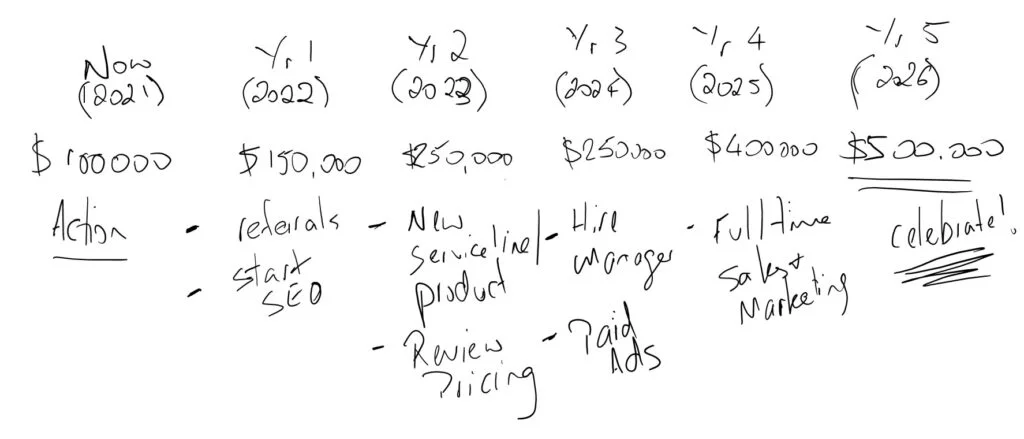 Now
(2021)
Yr 1
(2022)
Yr 2
(2023)
Yr 3
(2024)
Yr 4
(2025)
Yr 5
(2026)
$100000
$150,000
$250,000
$250000
$400000
$500.000
Action
- referrals
- start
SEO
- New
Serviceline/
product
- Review
Pricing
- Hire
Manager
- Paid
Ads
- Full time
Sales +
Marketing
celebrate!